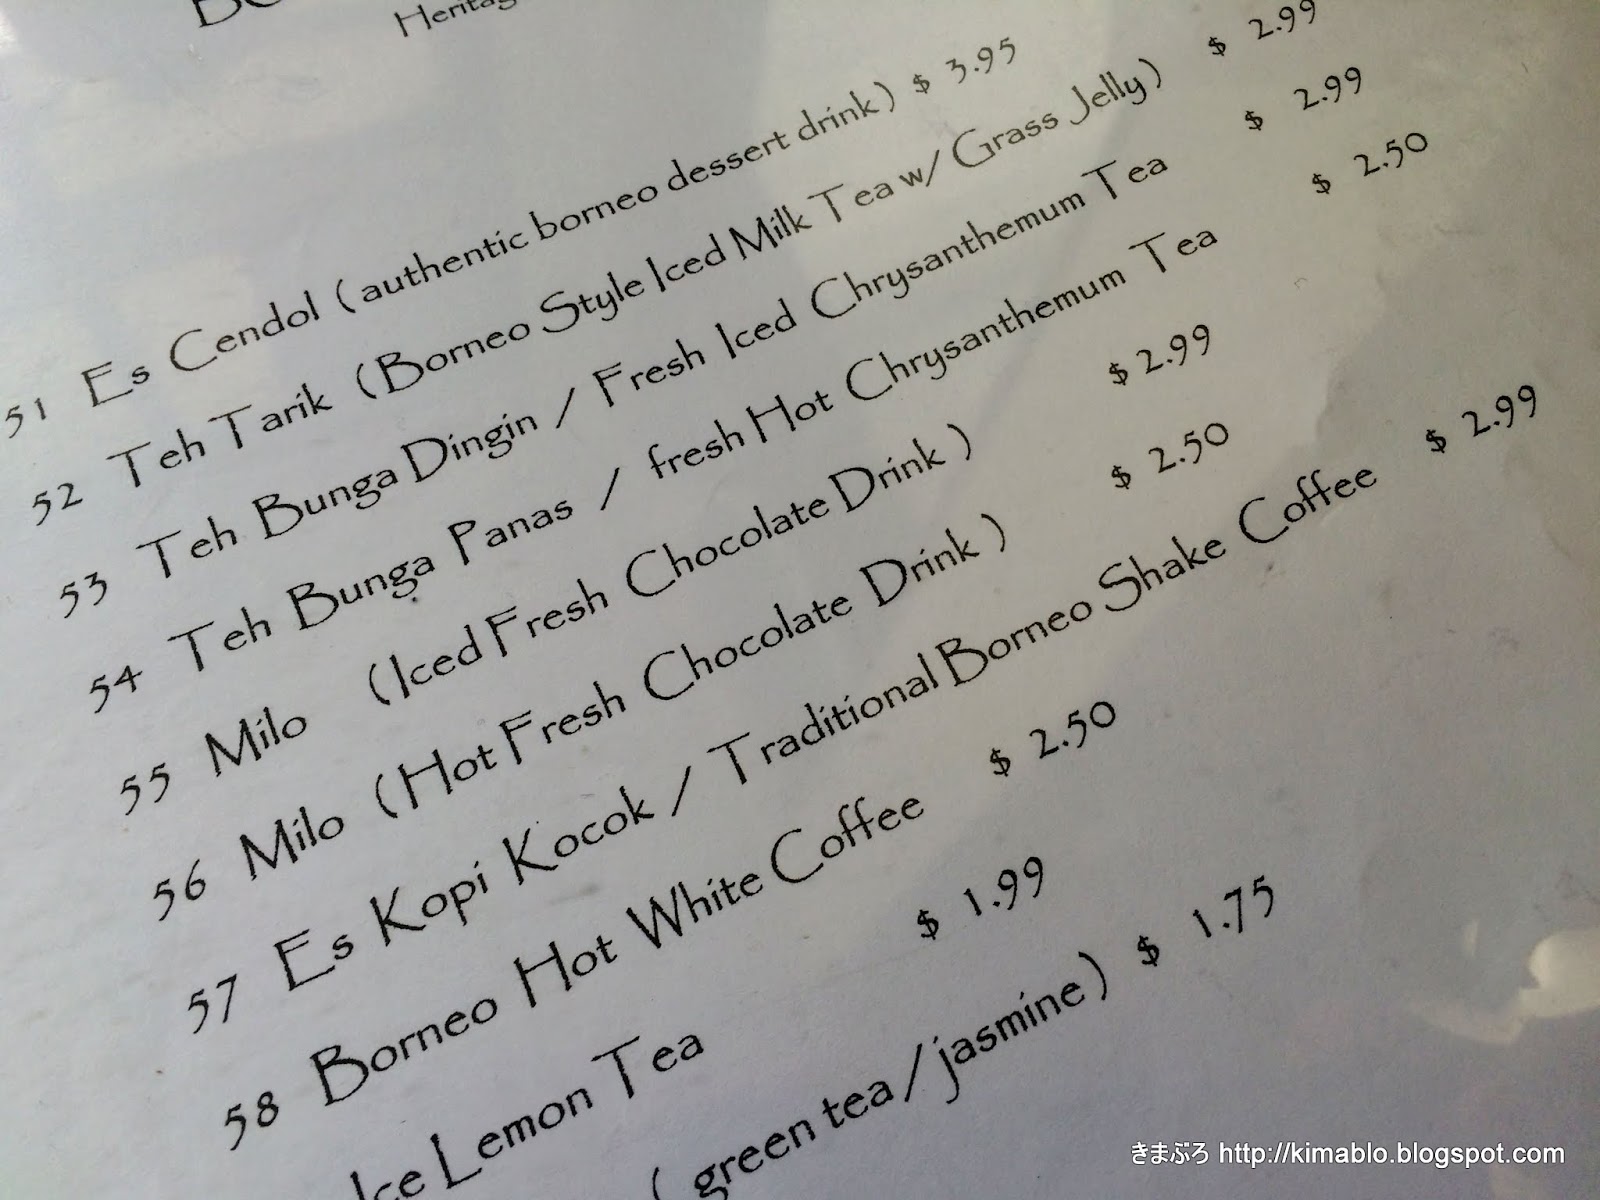 51 Es Cendol (authentic borneo dessert drink) $ 3.95
52 Teh Tarik (Borneo Style Iced Milk Tea w/ Grass Jelly) $ 2.99
53 Teh Bunga Dingin / Fresh Iced Chrysanthemum Tea $ 2.99
54 Teh Bunga Panas / fresh Hot Chrysanthemum Tea $ 2.50
55 Milo (Iced Fresh Chocolate Drink) $ 2.99
56 Milo (Hot Fresh Chocolate Drink) $ 2.50
57 Es Kopi Kocok / Traditional Borneo Shake Coffee $ 2.99
58 Borneo Hot White Coffee $ 2.50
Ice Lemon Tea $ 1.99
(green tea/jasmine) $ 1.75
きまぶろ http://kimablo.blogspot.com